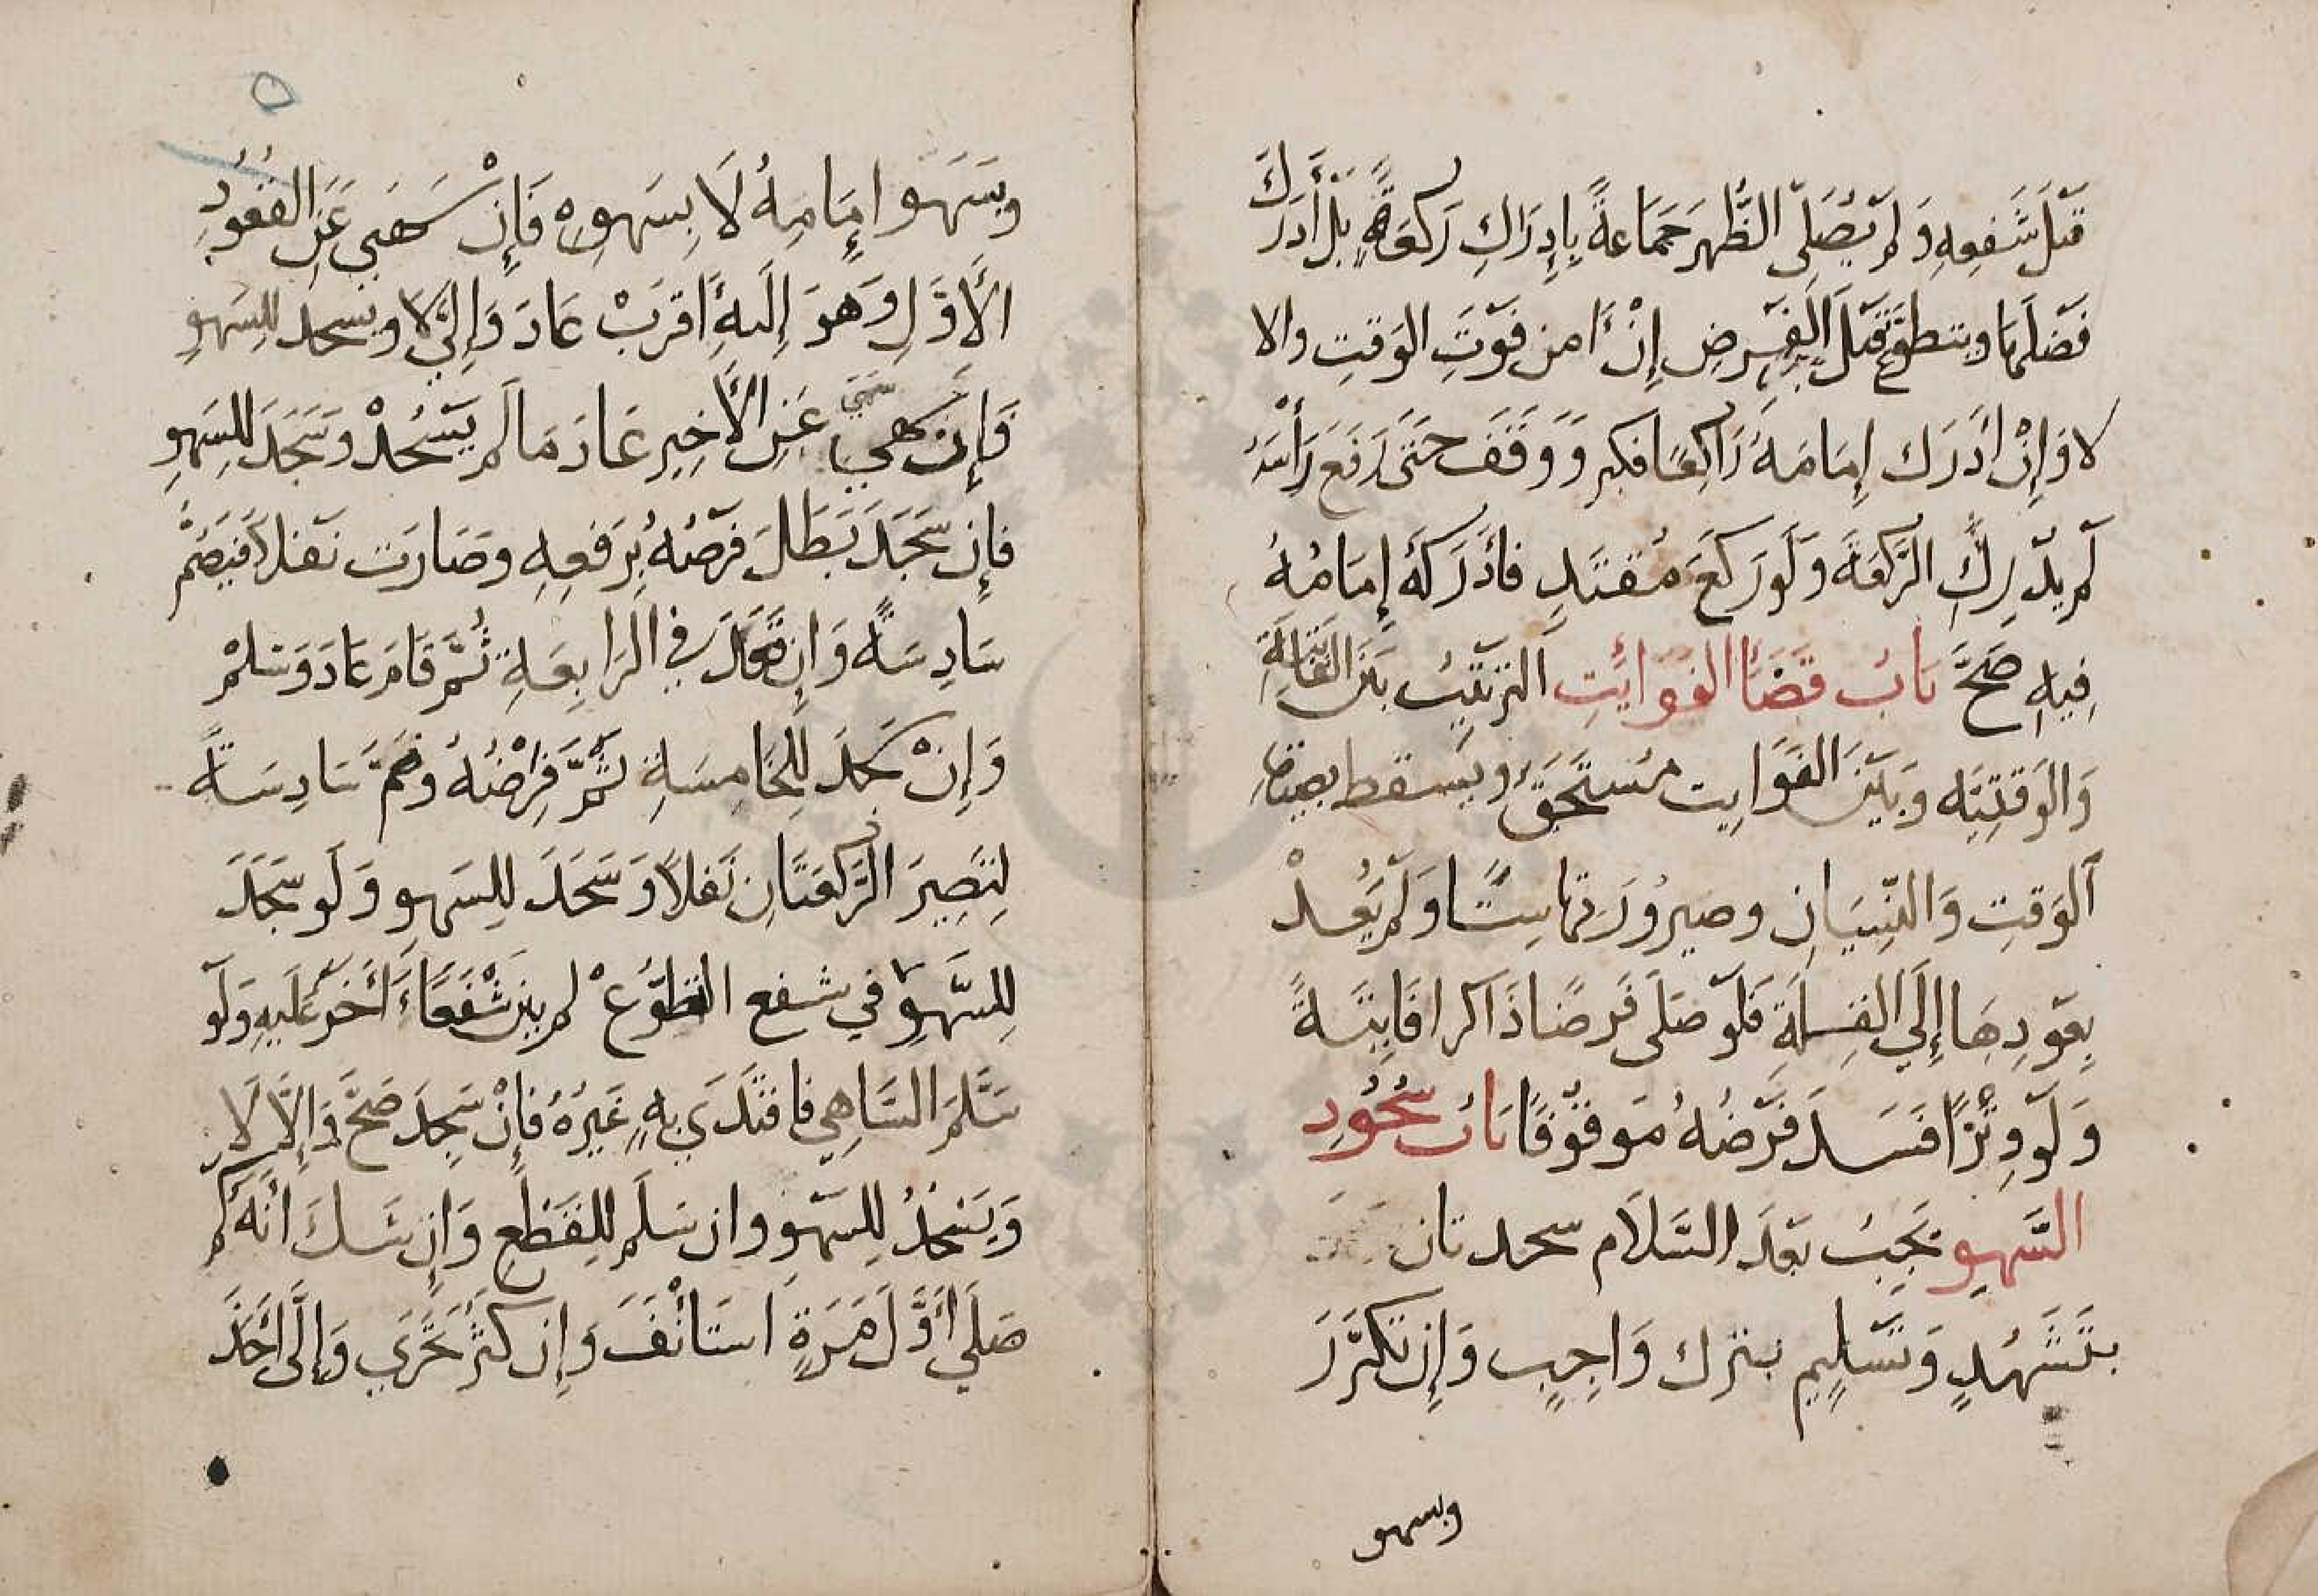 قَبْلَ شَفعِهِ وَلَمْ يُصَلِّي الظُّهرَ جَمَاعَةً بِإِدرَاكِ رَكعَةٍ بَلْ أَدرَكَ
فَضلَهَا ويتطوَّع قَبْلَ الفَرضِ إِنْ أَمن فَوْتَ الوَقتِ والا
لا وَإِنْ أَدْرَك إِمَامَهُ رَاكِعًا فكبر وَوَقَفَ حَتَى رَفَعَ رَأْسَهُ
لَمْ يدْرِكْ الرَّكعَةَ وَلَو رَكَعَ مُقتَدٍ فَأَدْرَكَهُ إِمَامُهُ
فِيهِ صَحَّ بَابُ قَضَاَ الفَوَايَتِ اَلتَرتَيبُ بَيْنَ الفَايتَةِ
وَالوَقتِيَه وَبَيْنَ الفَوَايِت مُستَحَقٌ وَيَسقط بضيق
اَلوَقتِ وَالنِّسيَانِ وصَيرُورَتها سِتًّا وَلَمْ يَعُدْ
بِعَودِهَا إِلَي القِلَةِ فَلَو صَلَى فَرضًا ذَاكرا فَايِتَةً
وَلَو وِتْرًا فَسَدَ فَرْضُهُ مَوقُوفًا بَابُ سُجُودِ
السَّهوِ يَجِبُ بَعْدَ السَّلَام سجدتان
بِتَشَهُدٍ وَتَسْلِيمٍ بِتَرك وَاجِبٍ وَإِن تَكَرَّرَ
وبسهو
وبسَهو إِمَامِهِ لَا بِسَهوِهِ فَإِن سَهَي عَنِ القُعُودِ
الأَوَّلِ وَهوَ إِلَيهِ أَقرَبْ عَادَ وَإِلَّا لَا ويسجد للسَهوِ
فَإِن سَهَي سَهَي عَنِ الأَخِيرِ عَادَ مَا لَم يَسْجُدْ وَسَجَدَ لِلسَهوِ
فَإِن سَجَدَ بَطَلَ فَرْضُهُ بِرَفعِهِ وصَارَت نَفلاً فَيَضُمُّ
سَادِسَةً وَإِن قَعَدَ في الرَابِعَةِ ثُمَّ قَامَ عَادَ وَسَلمْ
وَإِنْ سَجَدَ لِلخَامِسَةِ تَمَّ فَرْضُهُ وَضَمَّ سَادِسَةً
لِتَصِيرَ الرَّكعَتَانِ نَفلاً وَسَجَدَ لِلسَهو وَلَو سَجَدَ
لِلسَّهوِ في شفع التطَوُّع لم يبن شَفْعًا أَخَر عَلَيهِ وَلَو
سَلَّمَ السَّاهِي فَاقتَدَي بِهِ غَيرُهُ فَإِنْ سَجَدَ صَحَّ وَإِلَّا لَا
وَيَسْجُدُ لِلسَهْوِ وان سَلَم لِلقَطعِ وَإِن شَكَ أَنَهُ كَم
صَلَي أَوَّلَ مَرَةٍ اَستَأنَفَ وَإِن كَثُرَ تَحَّرَي وَإِلَّا أَخَذَ